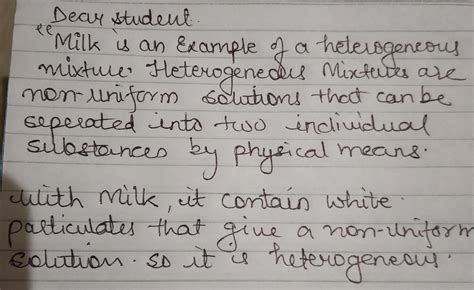 Dear student.
"Milk is an Example of a heterogeneous
mixture. Heterogeneous Mixtures are
non-uniform solutions that can be
seperated into two individual
substances by physical means.
With Milk, it contain white
particulates that give a non-uniform
solution. so it is heterogeneous.